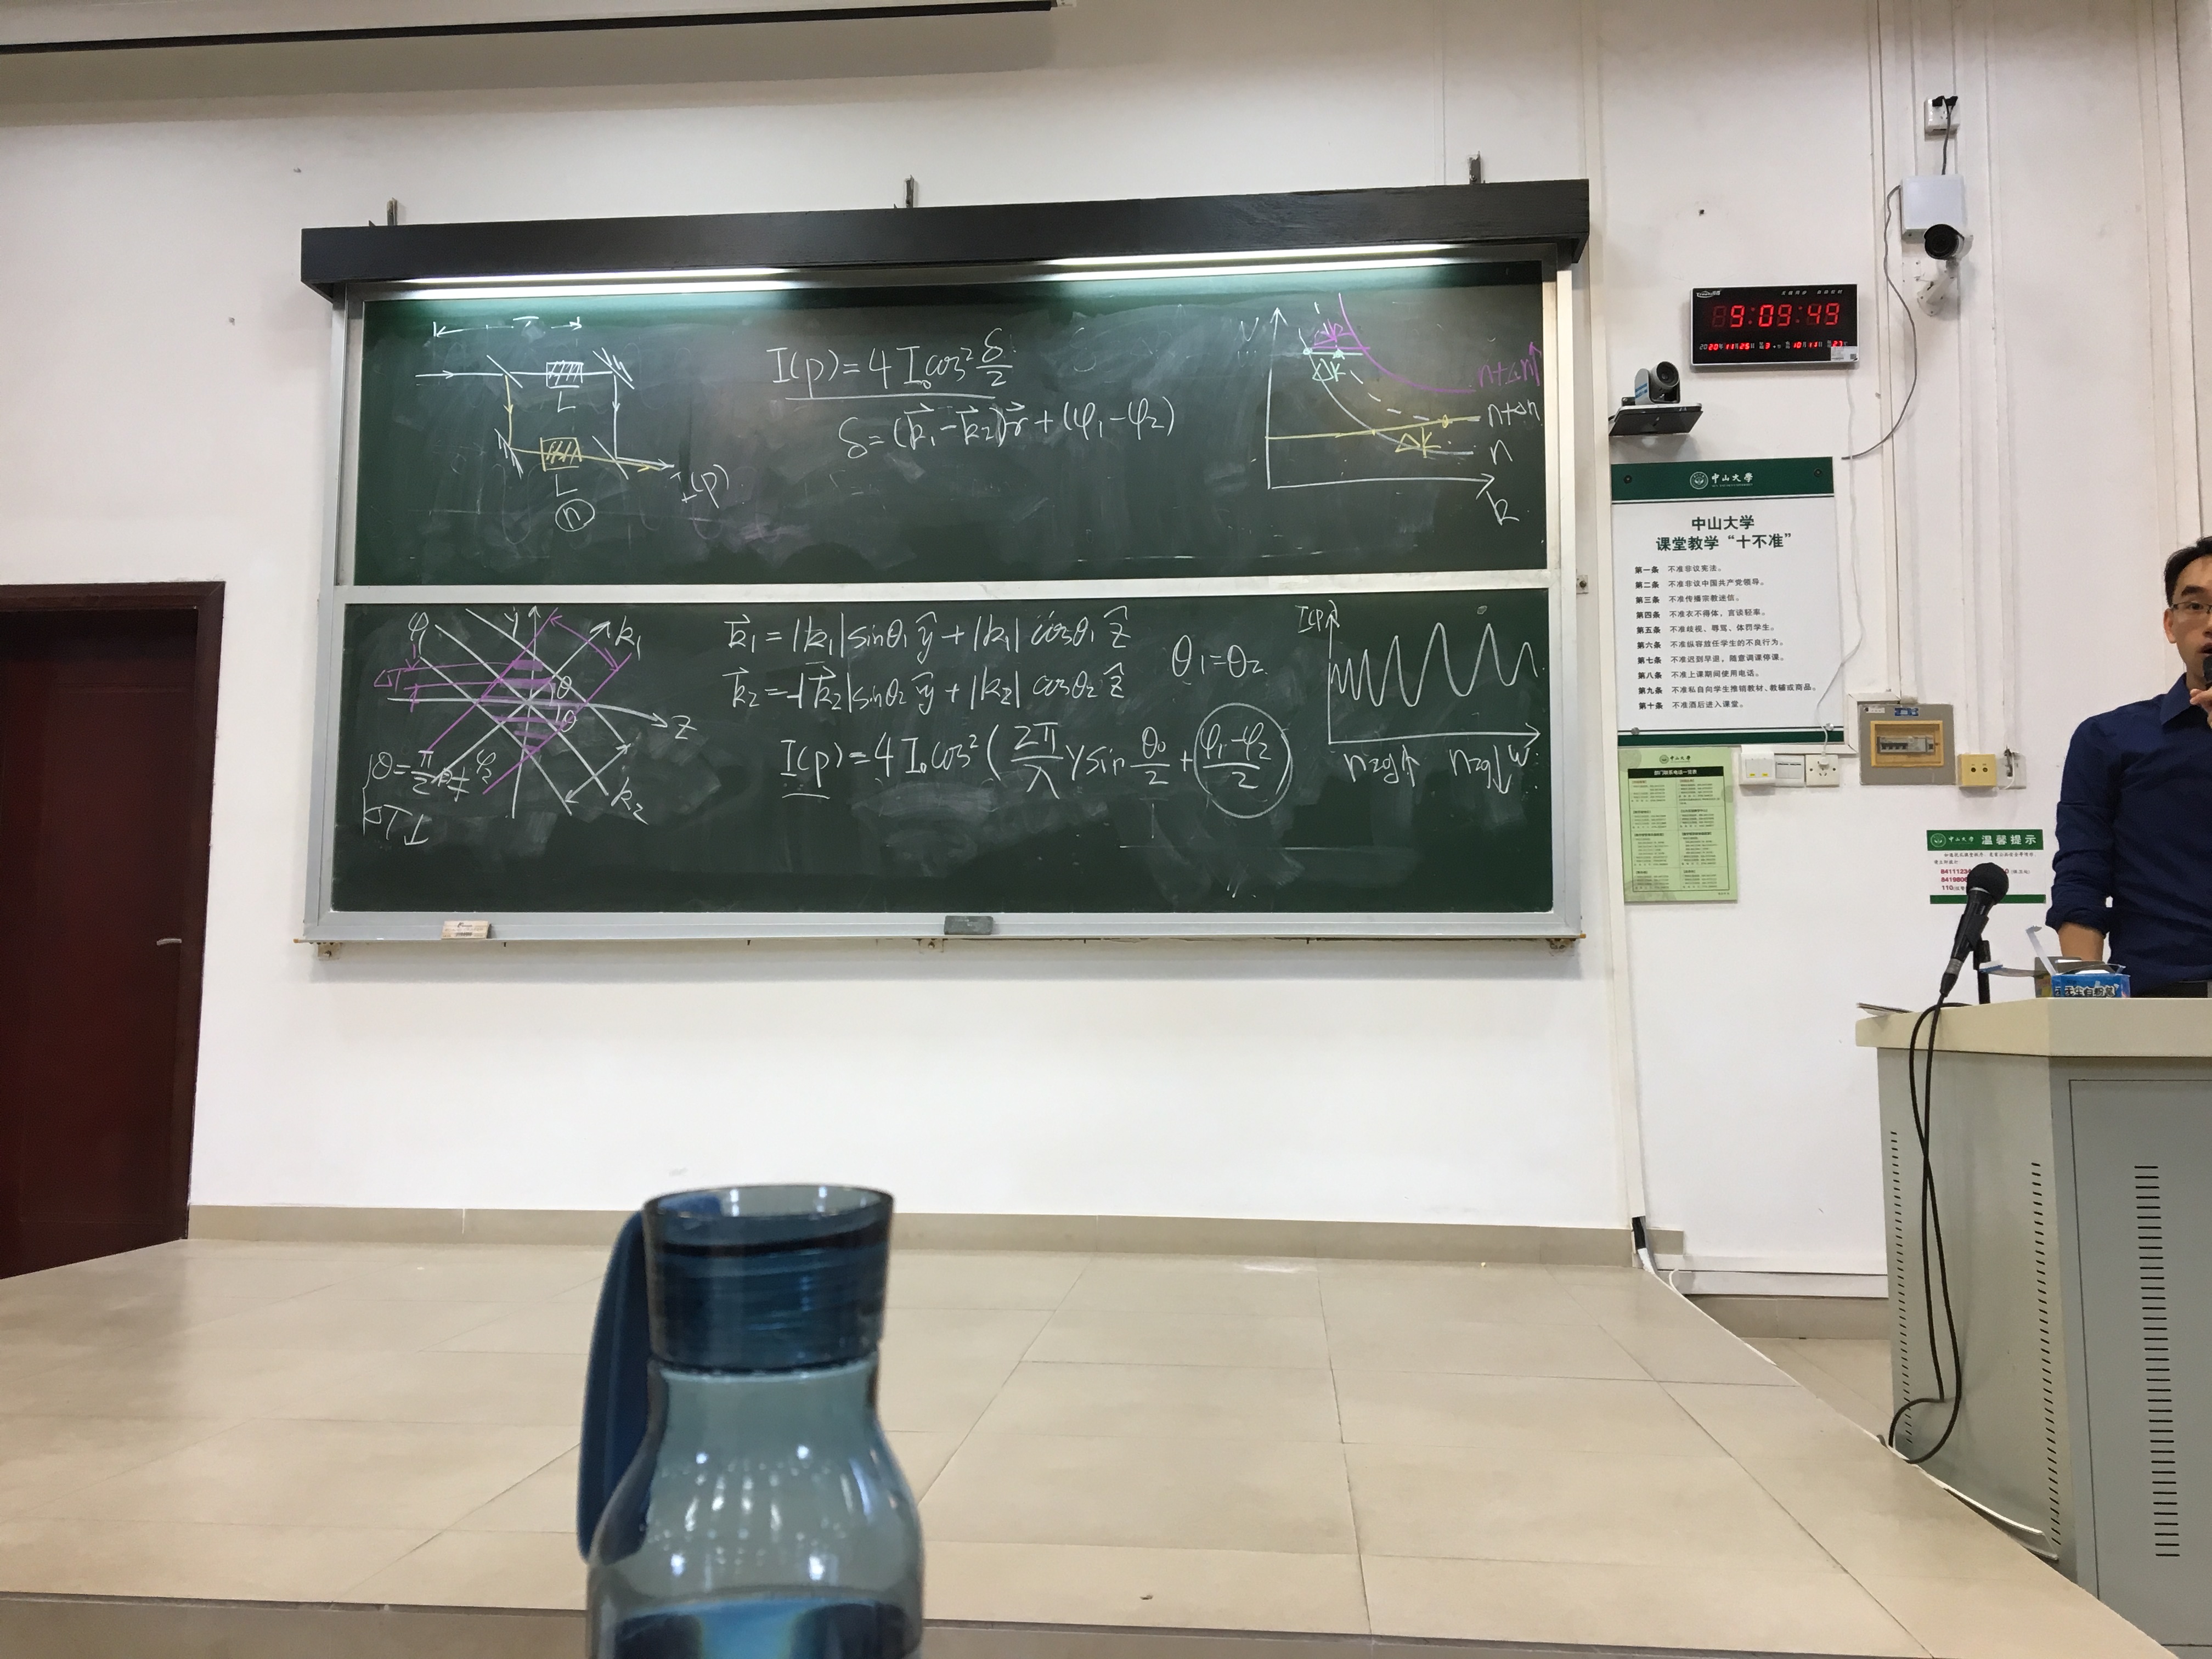 I(p) = 4 I₀ cos² δ/2
δ = (k⃗₁ - k⃗₂) r⃗ + (φ₁ - φ₂)
L
L
n
I(p)
n+Δn↑
n+Δn
n
Δk
Δk
Δk
k
φ₁
y
k₁
θ
θ
z
φ₂
k₂
k⃗₁ = |k₁| sinθ₁ ŷ + |k₁| cosθ₁ ẑ
k⃗₂ = -|k⃗₂| sinθ₂ ŷ + |k₂| cosθ₂ ẑ
θ₁ = θ₂
I(p) = 4 I₀ cos² ( 2π/λ y sin θ₀/2 + φ₁-φ₂/2 )
I(p)
n₂g↑
n₂g↓
w
9:09:49
中山大学
中山大学
课堂教学“十不准”
第一条 不准非议宪法。
第二条 不准非议中国共产党领导。
第三条 不准传播宗教迷信。
第四条 不准衣不得体,言谈轻率。
第五条 不准歧视、辱骂、体罚学生。
第六条 不准纵容放任学生的不良行为。
第七条 不准迟到早退,随意调课停课。
第八条 不准上课期间使用电话。
第九条 不准私自向学生推销教材、教辅或商品。
第十条 不准酒后进入课堂。
中山大学
中山大学 温馨提示